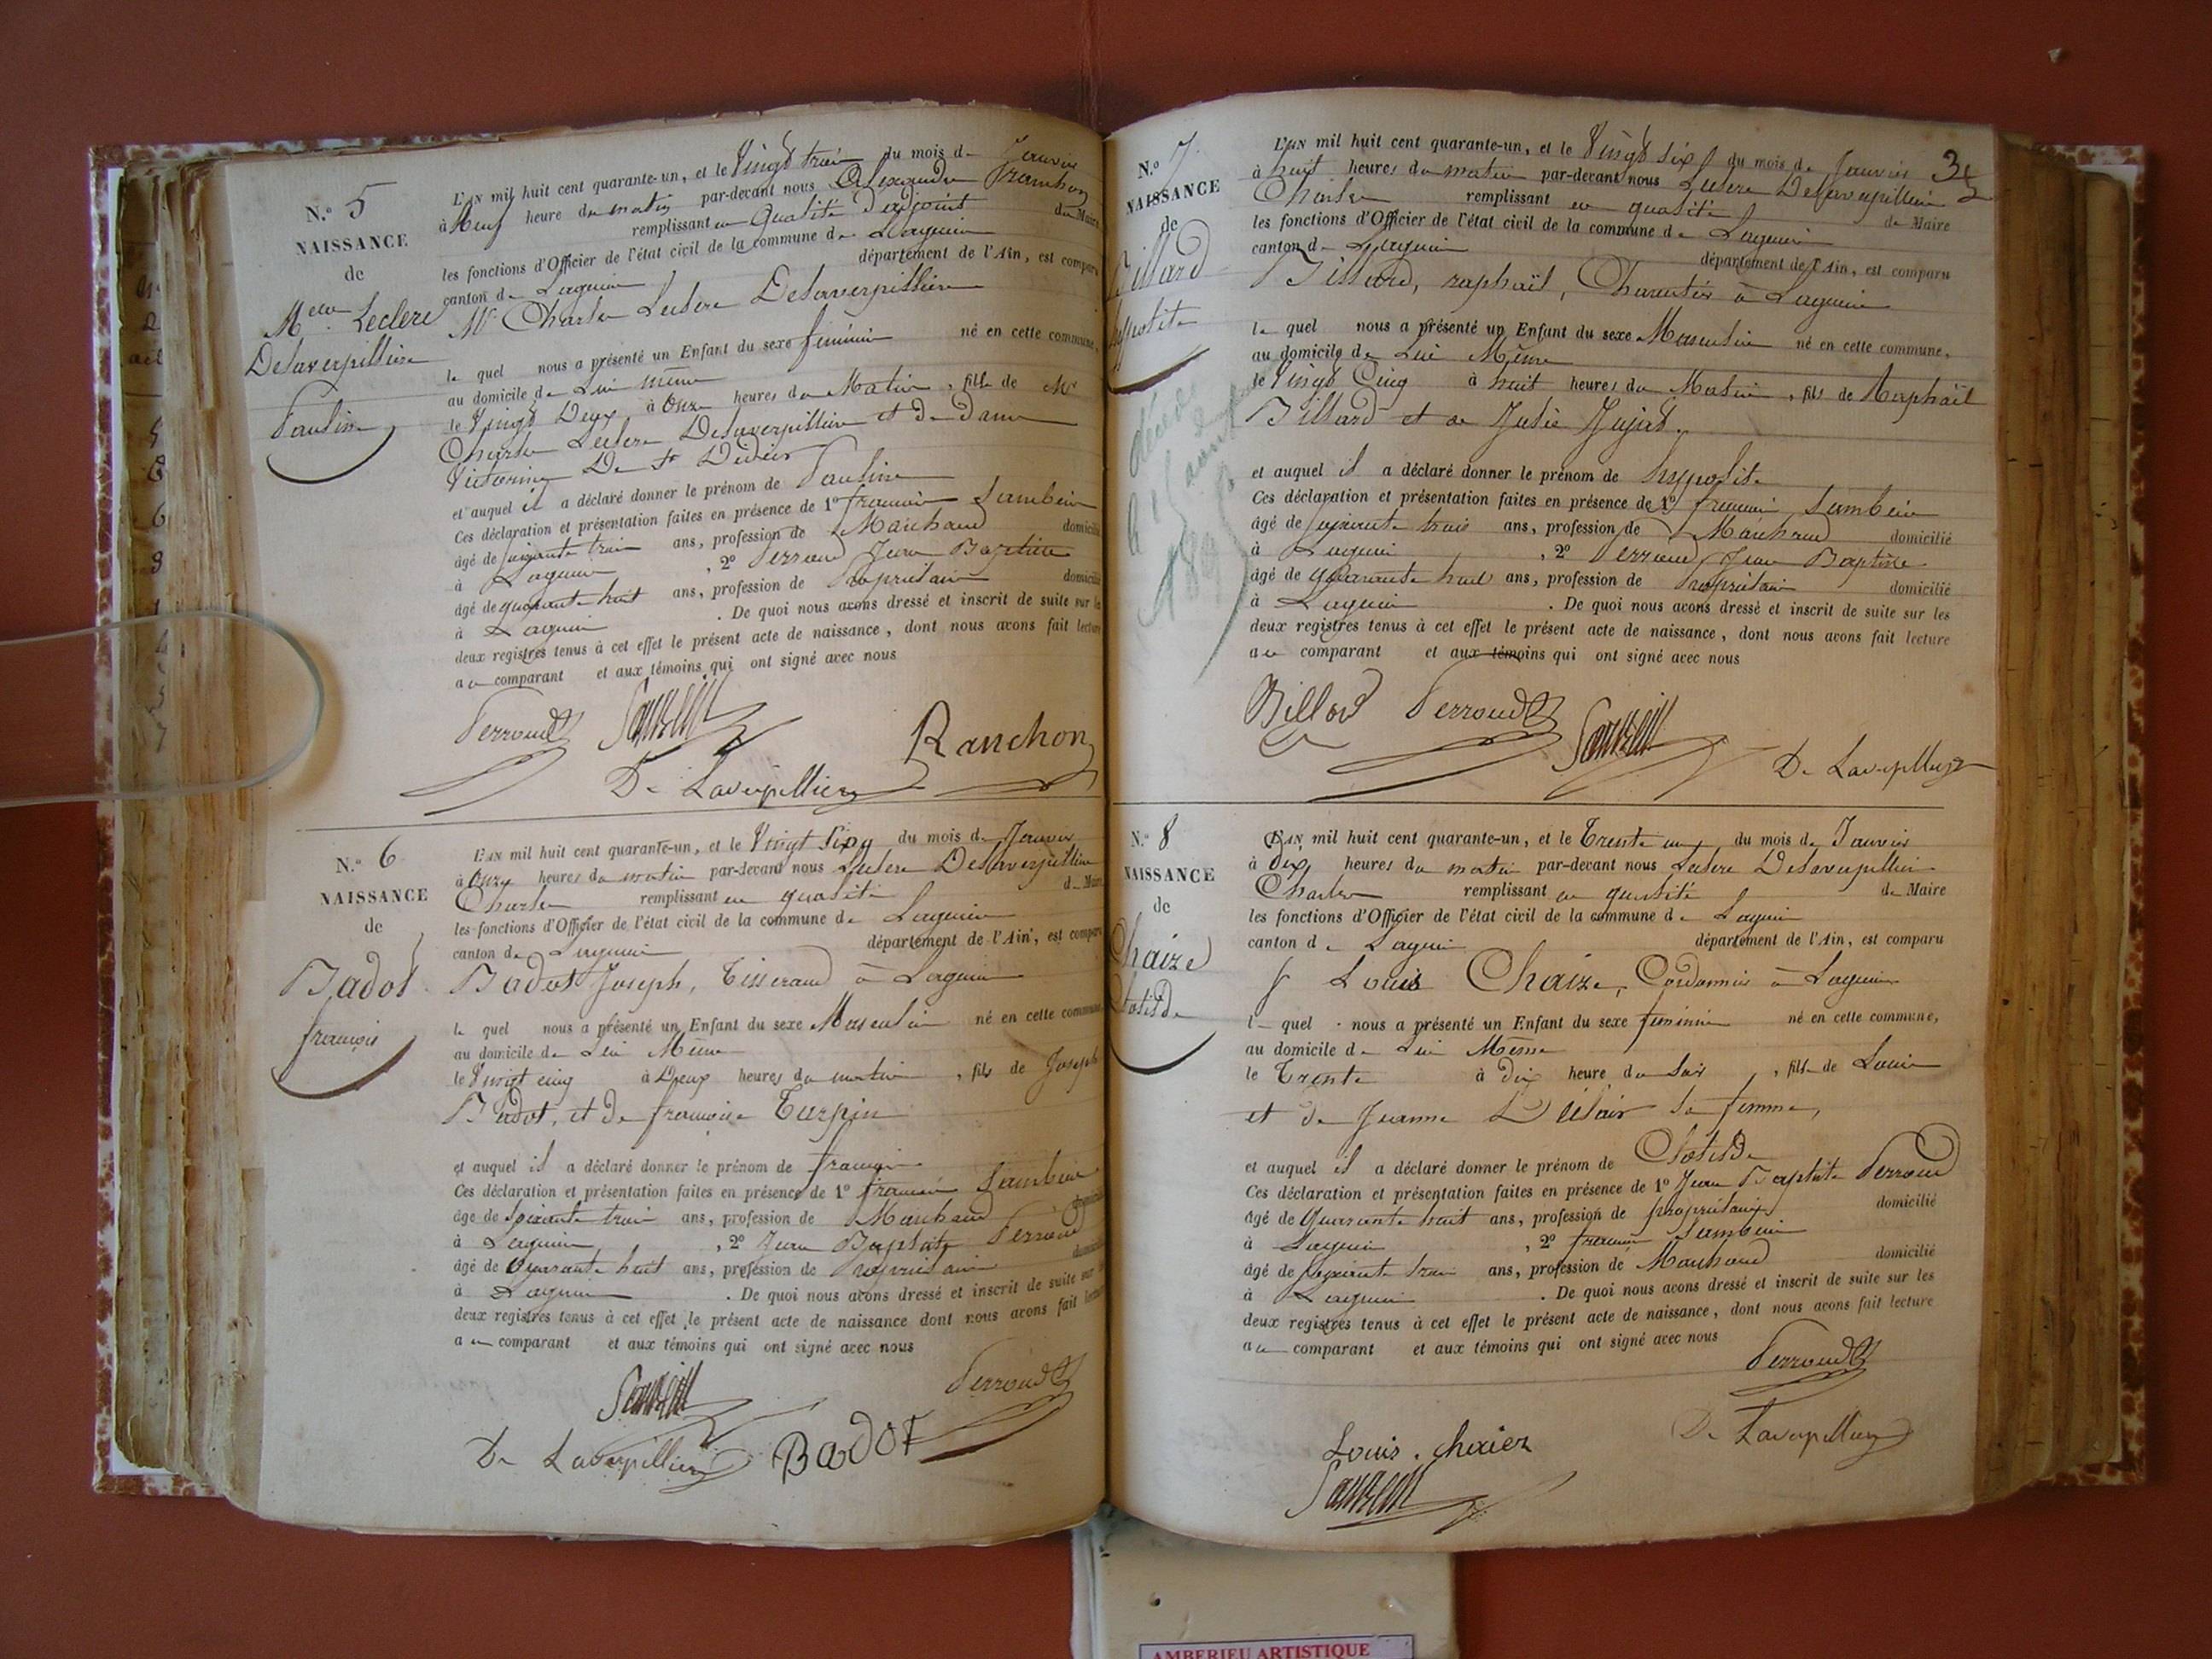 N.º 5
NAISSANCE
de
Melle Leclerc
Delaverpillière
Pauline
L'AN mil huit cent quarante-un, et le Vingt trois du mois de Janvier
à Neuf heure du matin par-devant nous Alexandre Franchon
remplissant en Qualité d'adjoint du Maire
les fonctions d'Officier de l'état civil de la commune de Lagnieu
canton de Lagnieu département de l'Ain, est comparu
Mr Charles Leclerc Delaverpillière
le quel nous a présenté un Enfant du sexe féminin né en cette commune,
au domicile de Lui même
le Vingt Deux, à Onze heures du Matin, fille de Mr
Charles Leclerc Delaverpillière et de Dame
Victorine De St Didier
et auquel il a déclaré donner le prénom de Pauline
Ces déclaration et présentation faites en présence de 1º françois
âgé de soixante trois ans, profession de Marchand domicilié
à Lagnieu, 2º Perroud Jean Baptiste
âgé de quarante huit ans, profession de Propriétaire domicilié
à Lagnieu. De quoi nous avons dressé et inscrit de suite sur les
deux registres tenus à cet effet le présent acte de naissance, dont nous avons fait lecture
au comparant et aux témoins qui ont signé avec nous
Perroud
De Laverpillière Ranchon
N.º 6
NAISSANCE
de
Badot
françois
L'AN mil huit cent quarante-un, et le Vingt Six du mois de Janvier
à Onze heures du matin par-devant nous Leclerc Delaverpillière
Charles remplissant en qualité de Maire
les fonctions d'Officier de l'état civil de la commune de Lagnieu
canton de Lagnieu département de l'Ain, est comparu
Badot Joseph, Tisserand à Lagnieu
le quel nous a présenté un Enfant du sexe Masculin né en cette commune
au domicile de Lui Même
le Vingt cinq à Deux heures du matin, fils de Joseph
Badot, et de françoise Turpin
et auquel il a déclaré donner le prénom de françois
Ces déclaration et présentation faites en présence de 1º françois
âgé de Soixante trois ans, profession de Marchand domicilié
à Lagnieu, 2º Jean Baptiste Perroud
âgé de Quarante huit ans, profession de Propriétaire domicilié
à Lagnieu. De quoi nous avons dressé et inscrit de suite sur les
deux registres tenus à cet effet le présent acte de naissance dont nous avons fait lecture
au comparant et aux témoins qui ont signé avec nous
Perroud
De Laverpillière BADOT
34
N.º 7
NAISSANCE
de
Billard
hyppolite
décédé
L'AN mil huit cent quarante-un, et le Vingt six du mois de Janvier
à huit heures du matin par-devant nous Leclerc Delaverpillière
Charles remplissant en qualité de Maire
les fonctions d'Officier de l'état civil de la commune de Lagnieu
canton de Lagnieu département de l'Ain, est comparu
Billard, raphaël, Charcutier à Lagnieu
le quel nous a présenté un Enfant du sexe Masculin né en cette commune,
au domicile de Lui Même
le Vingt Cinq à huit heures du Matin, fils de Raphaël
Billard et de Julie Jujat.
et auquel il a déclaré donner le prénom de hyppolite
Ces déclaration et présentation faites en présence de 1º françois
âgé de soixante trois ans, profession de Marchand domicilié
à Lagnieu, 2º Perroud Jean Baptiste
âgé de Quarante huit ans, profession de Propriétaire domicilié
à Lagnieu. De quoi nous avons dressé et inscrit de suite sur les
deux registres tenus à cet effet le présent acte de naissance, dont nous avons fait lecture
au comparant et aux témoins qui ont signé avec nous
Billard Perroud
De Laverpillière
N.º 8
NAISSANCE
de
Chaize
Clotilde
L'AN mil huit cent quarante-un, et le Trente un du mois de Janvier
à Dix heures du matin par-devant nous Leclerc Delaverpillière
Charles remplissant en qualité de Maire
les fonctions d'Officier de l'état civil de la commune de Lagnieu
canton de Lagnieu département de l'Ain, est comparu
Louis Chaize, Cordonnier à Lagnieu
le quel nous a présenté un Enfant du sexe féminin né en cette commune,
au domicile de Lui Même
le Trente à dix heure du Soir, fille de Louis
et de Jeanne sa femme,
et auquel il a déclaré donner le prénom de Clotilde
Ces déclaration et présentation faites en présence de 1º Jean Baptiste Perroud
âgé de Quarante huit ans, profession de propriétaire domicilié
à Lagnieu, 2º françois
âgé de soixante trois ans, profession de Marchand domicilié
à Lagnieu. De quoi nous avons dressé et inscrit de suite sur les
deux registres tenus à cet effet le présent acte de naissance, dont nous avons fait lecture
au comparant et aux témoins qui ont signé avec nous
Perroud
Louis. chaiez De Laverpillière
AMBERIEU ARTISTIQUE